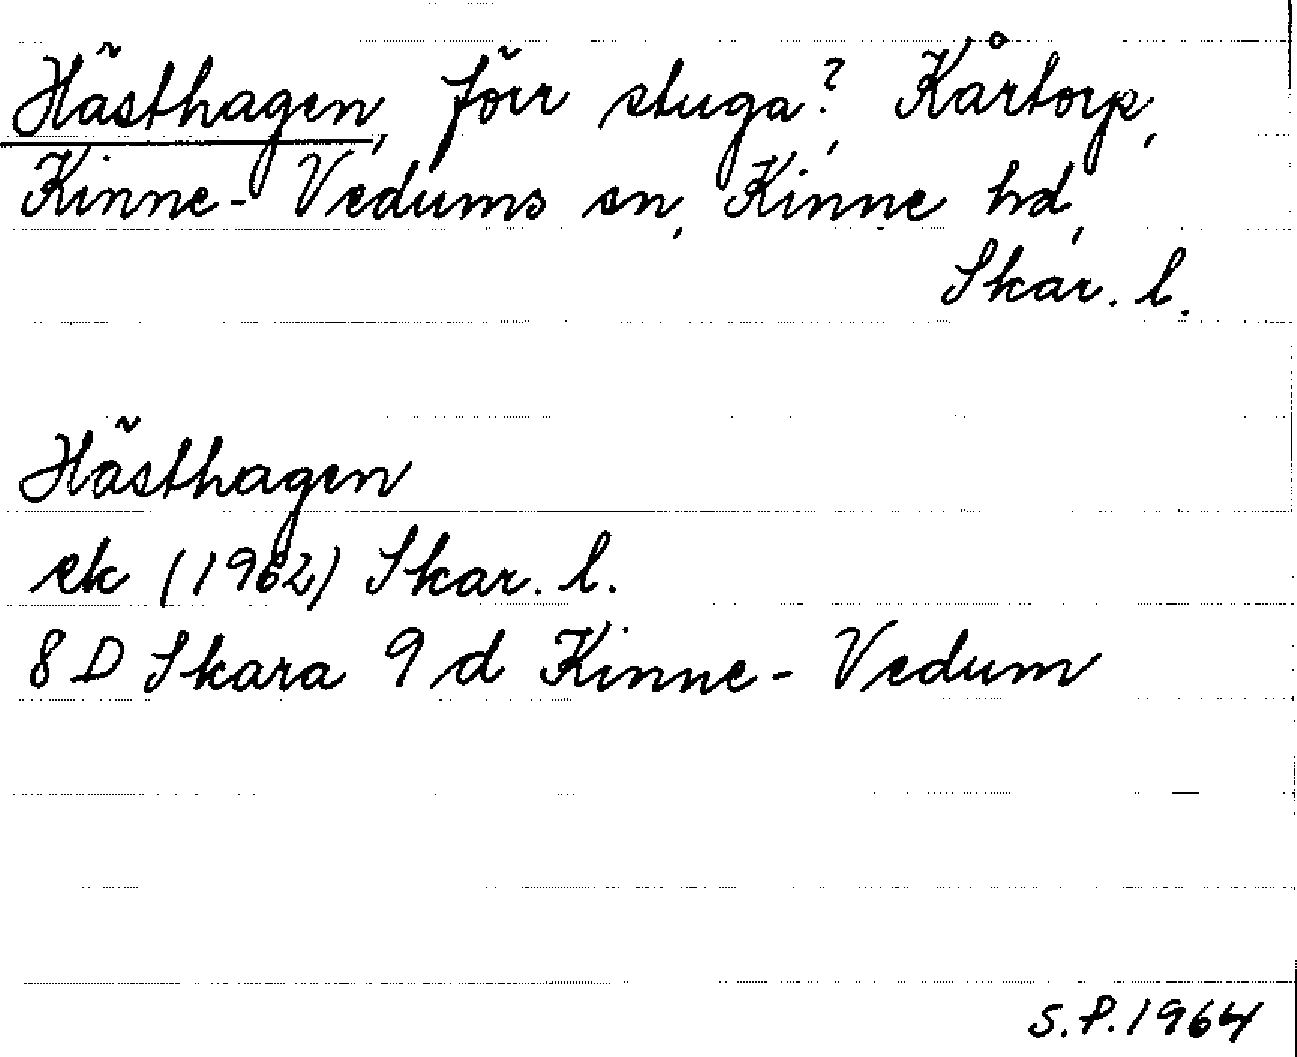 Hästhagen, förr stuga?, Kårtorp,
Kinne-Vedums sn, Kinne hd,
Skar. l.
Hästhagen
ek (1962) Skar. l.
8 D Skara 9 d Kinne-Vedum
S.P. 1964